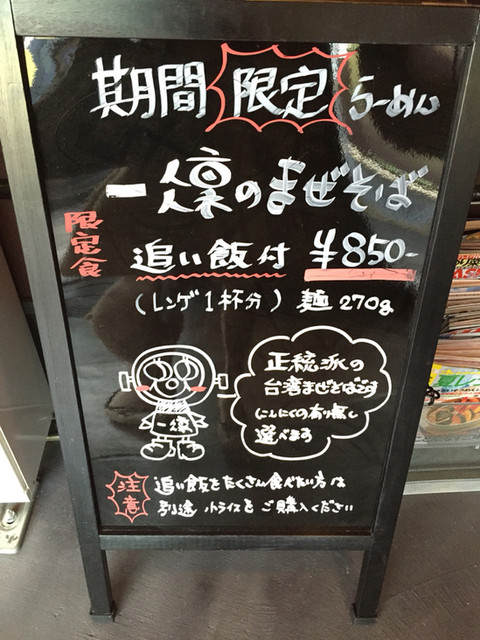 期間 限定 らーめん
一凛のまぜそば
限定食
追い飯付 ¥850-
(レンゲ1杯分) 麺270g
正統派の
台湾まぜそばです
にんにくの有り無し
選べます
一凛
注意
追い飯をたくさん食べたい方は
別途 小ライスをご購入ください